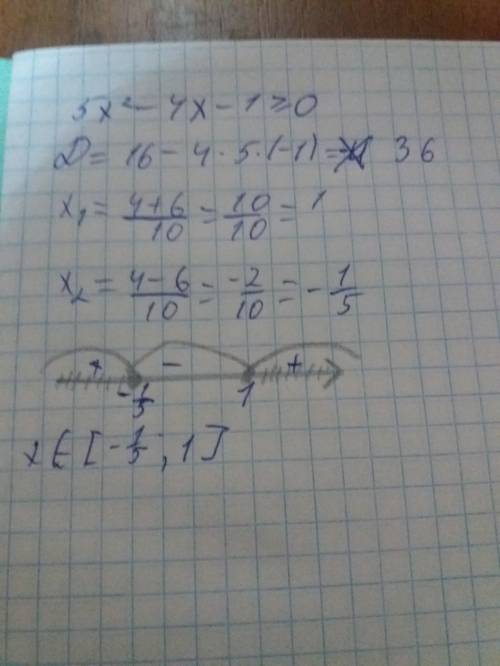 5x² - 4x - 1 ≥ 0
D = 16 - 4 · 5 · (-1) = 36
x₁ = \frac{4+6}{10} = \frac{10}{10} = 1
x₂ = \frac{4-6}{10} = \frac{-2}{10} = -\frac{1}{5}
+ - +
-\frac{1}{5} 1
x ∈ [-\frac{1}{5}; 1]